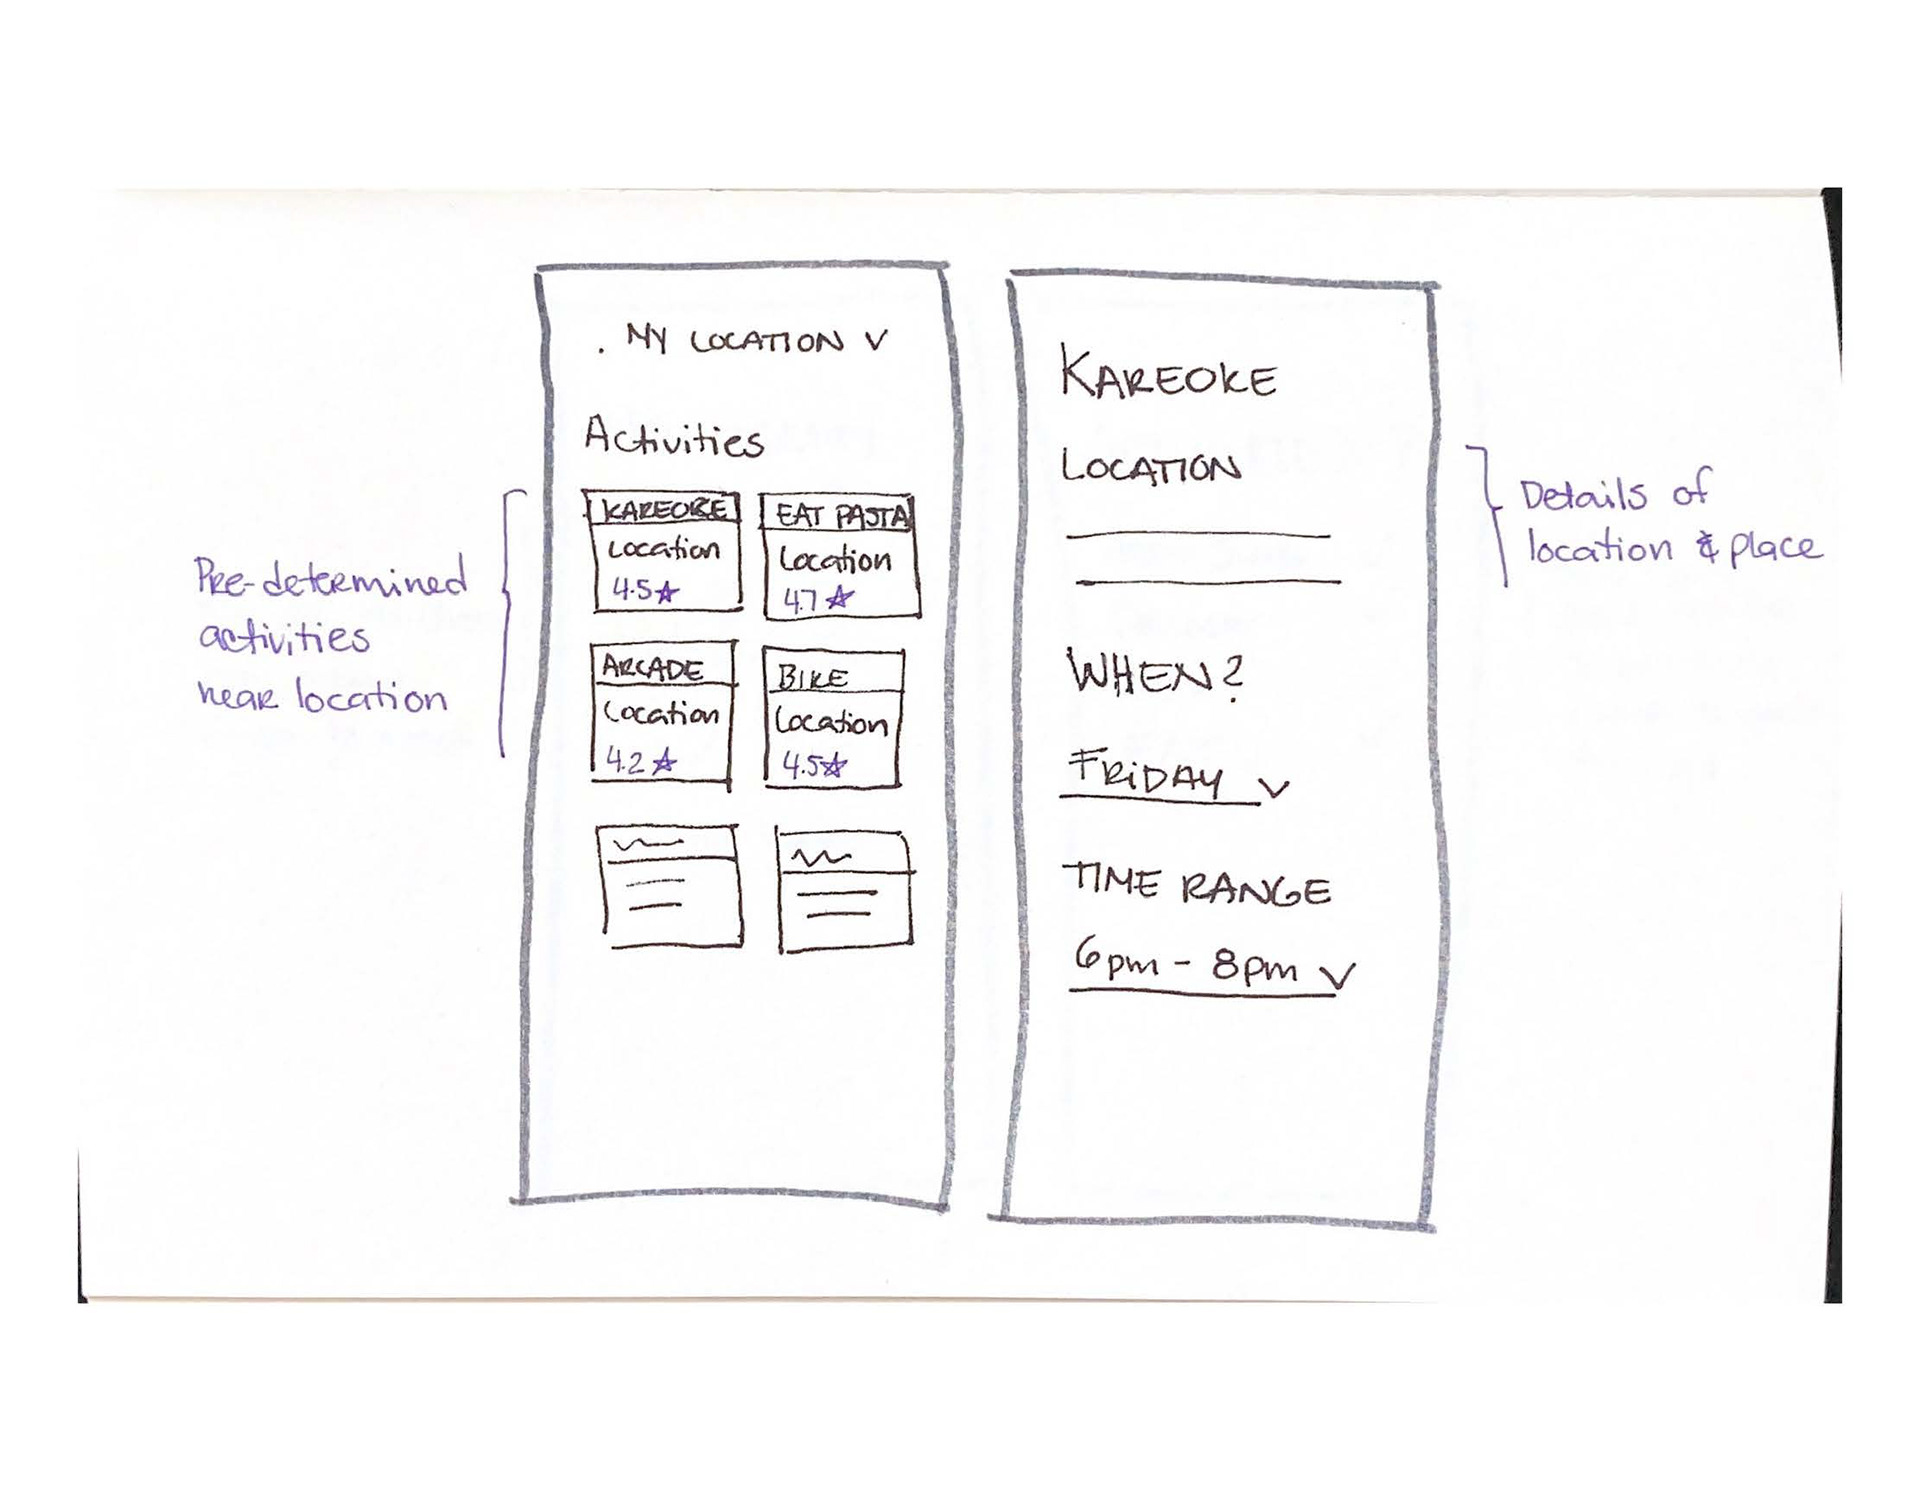 . MY LOCATION V
Activities
KAREOKE
Location
4.5☆
EAT PASTA
Location
4.7☆
ARCADE
Location
4.2☆
BIKE
Location
4.5☆
Pre-determined
activities
near location
KAREOKE
LOCATION
WHEN?
FRiDAY V
TIME RANGE
6pm - 8pm V
Details of
location & place